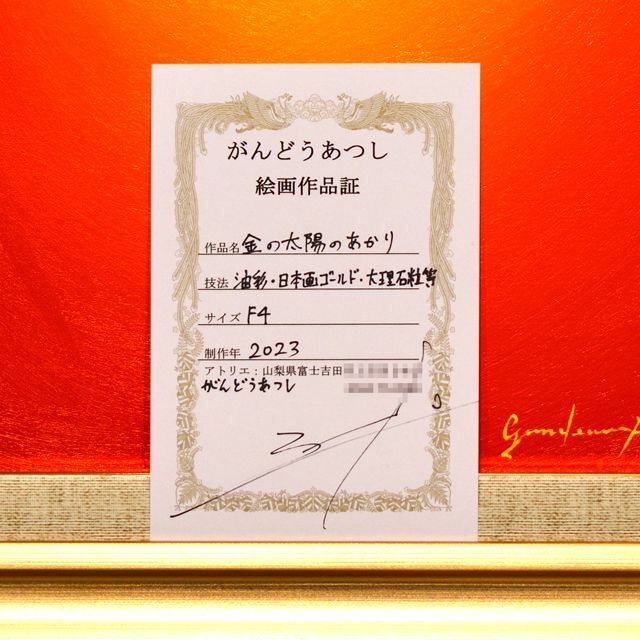 がんどうあつし
絵画作品証
作品名 金の太陽のあかり
技法 油彩・日本画ゴールド・大理石粒等
サイズ F4
制作年 2023
アトリエ：山梨県富士吉田
がんどうあつし